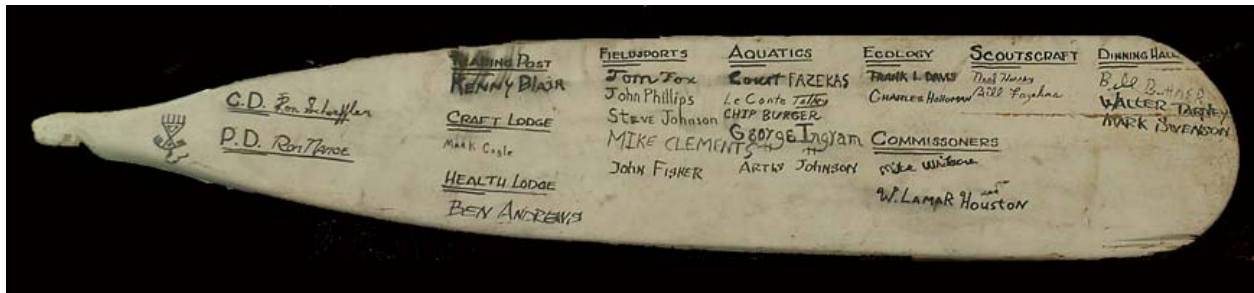 C.D. Ron Schaffler
P.D. Ron
TRADING POST
KENNY BLAIR
CRAFT LODGE
Mark Cagle
HEALTH LODGE
BEN ANDREWS
FIELDSPORTS
Tom Fox
John Phillips
Steve Johnson
MIKE CLEMENTS
John Fisher
AQUATICS
Court FAZEKAS
Le Conte Talley
CHIP BURGER
George Ingram
ARTHS JOHNSON
ECOLOGY
FRANK L. DAVIS
CHARLES Holloman
COMMISSONERS
Mike
W. LAMAR HOUSTON
SCOUTSCRAFT
Bill Fazekas
DINNING HALL
Bill
WALTER TARVEY
MARK SWENSON